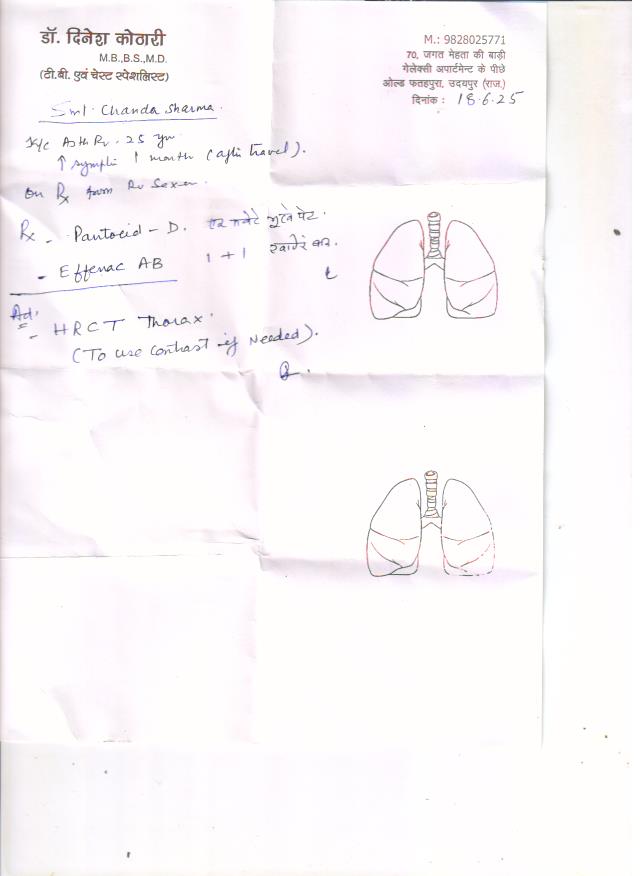 डॉ. दिनेश कोठारी
M.B.,B.S.,M.D.
(टी.बी. एवं चेस्ट स्पेशलिस्ट)
M.: 9828025771
70, जगत मेहता की बाड़ी
गेलेक्सी अपार्टमेन्ट के पीछे
ओल्ड फतहपुरा, उदयपुर (राज.)
दिनांक : 18.6.25
Smt. Chanda Sharma.
K/c 25 yr
↑ 1 month (after travel).
On Rx from
Rx - Pantocid - D.
- Effenac AB 1 + 1
Ad.
- HRCT Thorax.
(To use contrast if Needed).